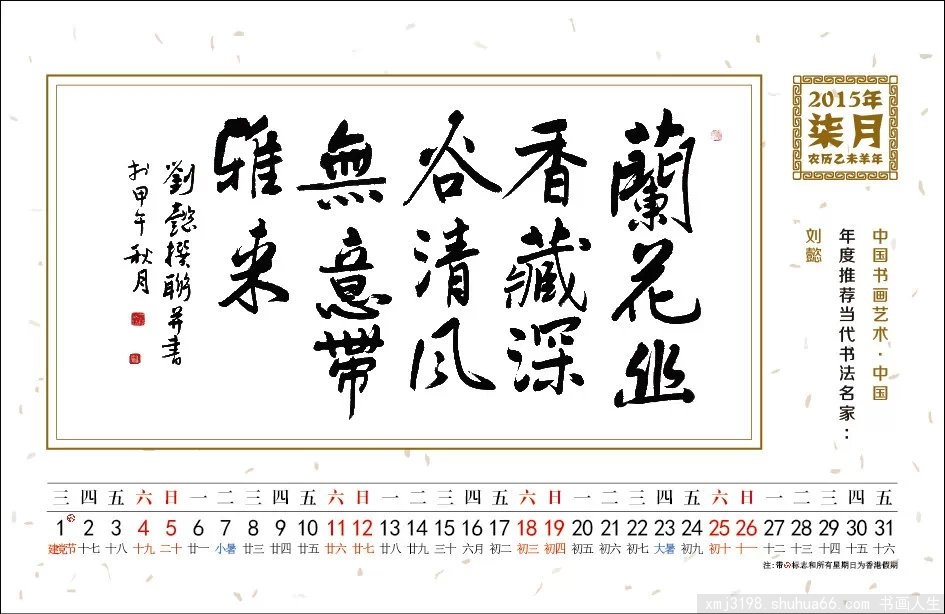 蘭花幽
香藏深
谷清風
無意帶
雅来
劉懿撰聯并書
于甲午秋月
2015年
柒月
农历乙未羊年
中国书画艺术·中国
年度推荐当代书法名家：
刘懿
三 四 五 六 日 一 二 三 四 五 六 日 一 二 三 四 五 六 日 一 二 三 四 五 六 日 一 二 三 四 五
1 2 3 4 5 6 7 8 9 10 11 12 13 14 15 16 17 18 19 20 21 22 23 24 25 26 27 28 29 30 31
建党节 十七 十八 十九 二十 廿一 小暑 廿三 廿四 廿五 廿六 廿七 廿八 廿九 三十 六月 初二 初三 初四 初五 初六 初七 大暑 初九 初十 十一 十二 十三 十四 十五 十六
注:带 标志和所有星期日为香港假期
xmj3198.shuhua66.com 书画人生